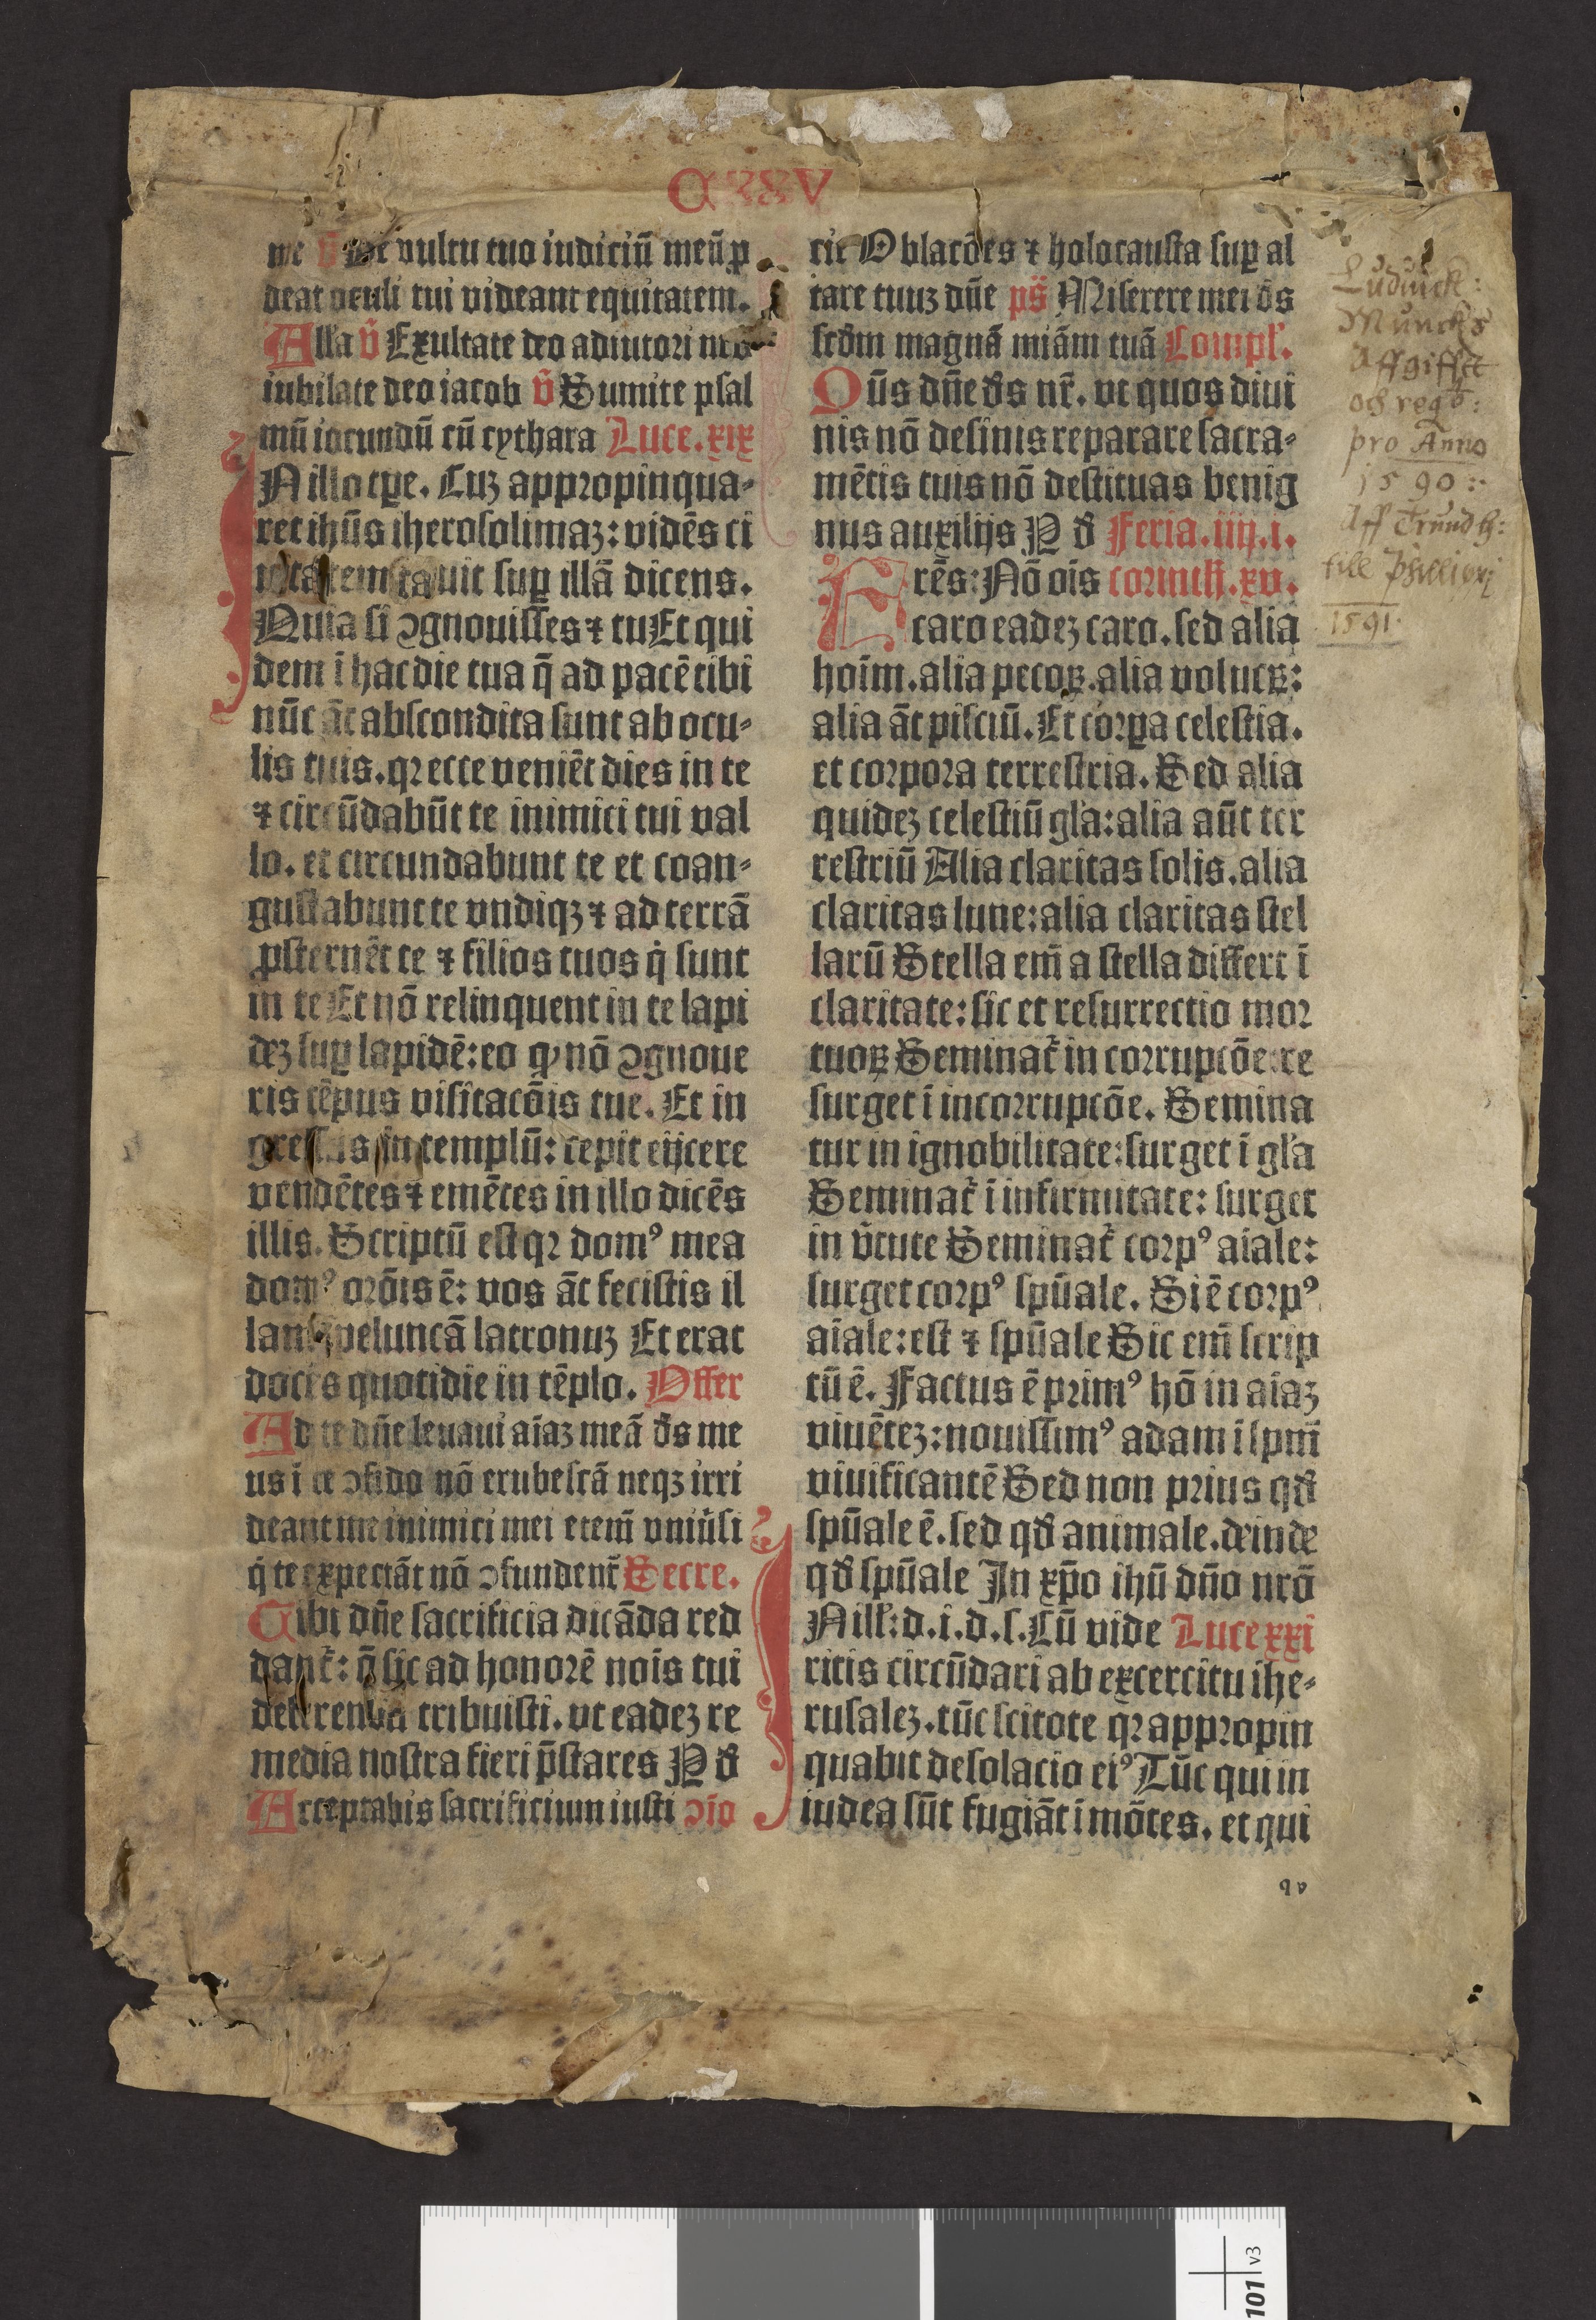 CXXV
me v̄ De vultu tuo iudiciū meū ꝓ
deat oculi tui videant equitatem.
Alla v̄ Exultate deo adiutori nr̄o
iubilate deo iacob v̄ Sumite psal
mū iocundū cū cythara Luce.xix
IN illo tꝑe. Cuꝫ appropinqua⸗
ret ihūs iherosolimaꝫ: vidēs ci
uitatem fleuit suꝑ illā dicens.
Quia si ꝯgnouisses ⁊ tu Et qui
dem ī hac die tua q̄ ad pacē tibi
nūc āt abscondita sunt ab ocu⸗
lis tuis. qꝛ ecce veniēt dies in te
⁊ circūdabūt te inimici tui val
lo. et circundabunt te et coan⸗
gustabunt te vndiqꝫ ⁊ ad terrā
ꝓsternēt te ⁊ filios tuos q̇ sunt
in te Et nō relinquent in te lapi
deꝫ suꝑ lapidē: eo ꝙ nō ꝯgnoue
ris tēpus visitacōis tue. Et in
gressus in templū: cepit eijcere
vendētes ⁊ emētes in illo dicēs
illis. Scriptū est qꝛ domꝰ mea
domꝰ orōis ē: vos āt fecistis il
lam speluncā latronuꝫ Et erat
docēs quotidie in tēplo. Offer
Ad te dn̄e leuaui aīaꝫ meā ds̄ me
us ī te ꝯfido nō erubescā neqꝫ irri
deant me inimici mei etem̄ vniūsi
q̇ te expectāt nō ꝯfundent᷑ Secre.
Tibi dn̄e sacrificia dicāda red
dant᷑: q̄ sic ad honorē noīs tui
deferenda tribuisti. vt eadeꝫ re
media nostra fieri p̄stares P d̄
Acceptabis sacrificium iusti ꝯīo
cie Oblacōes ⁊ holocausta suꝑ al
tare tuuꝫ dn̄e ps̄ Miserere mei ds̄
scd̄m magnā miām tuā Compl̄.
Qūs dn̄e ds̄ nr̄. vt quos diui
nis nō desinis reparare sacra⸗
mētis tuis nō destituas benig
nus auxilijs P d̄ Feria.iiij.i.
Frēs: Nō oīs corinth.xv.
caro eadeꝫ caro. sed alia
hoīm. alia pecoꝝ. alia volucꝝ:
alia āt pisciū. Et corꝑa celestia.
et corpora terrestria. Sed alia
quideꝫ celestiū gl̄a: alia aūt ter
restriū Alia claritas solis. alia
claritas lune: alia claritas stel
larū Stella em̄ a stella differt ī
claritate: sic et resurrectio mor
tuoꝝ Seminat᷑ in corrupcōe: re
surget ī incorrupcōe. Semina
tur in ignobilitate: surget ī gl̄a
Seminat᷑ ī infirmitate: surget
in v̄tute Seminat᷑ corpꝰ aīale:
surget corpꝰ spūale. Si ē corpꝰ
aīale: est ⁊ spūale Sic em̄ scrip
tū ē. Factus ē primꝰ hō in aīaꝫ
viuēteꝫ: nouissimꝰ adam ī spm̄
viuificantē Sed non prius qd̄
spūale ē. sed qd̄ animale. deinde
qd̄ spūale In xp̄o ihū dn̄o nrō
IN ill: d. i. d. s. Cū vide Luce xxi
ritis circūdari ab excercitu ihe⸗
rusaleꝫ. tūc scitote qꝛ appropin
quabit desolacio eiꝰ Tūc qui in
iudea sūt fugiāt ī mōtes. et qui
q v
Ludvick:
Munchs
Affgifftt
och regb:
pro Anno
1590:
Aff Trundh:
till Philliprj
1591.